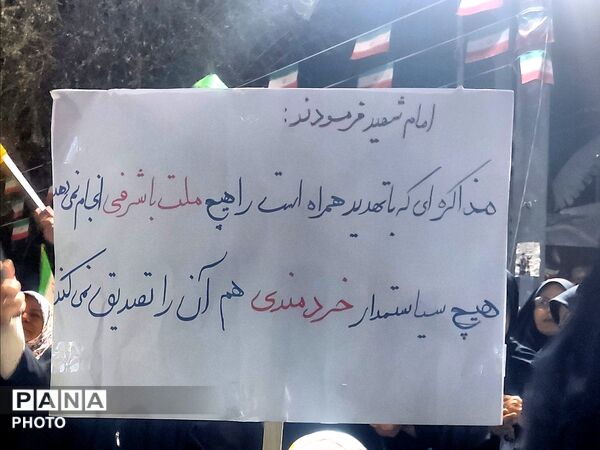 امام شهید فرمودند:
مذاکره‌ای که با تهدید همراه است را هیچ ملت باشرفی انجام نمی‌دهد
هیچ سیاستمدار خردمندی هم آن را تصدیق نمی‌کند
PANA
PHOTO